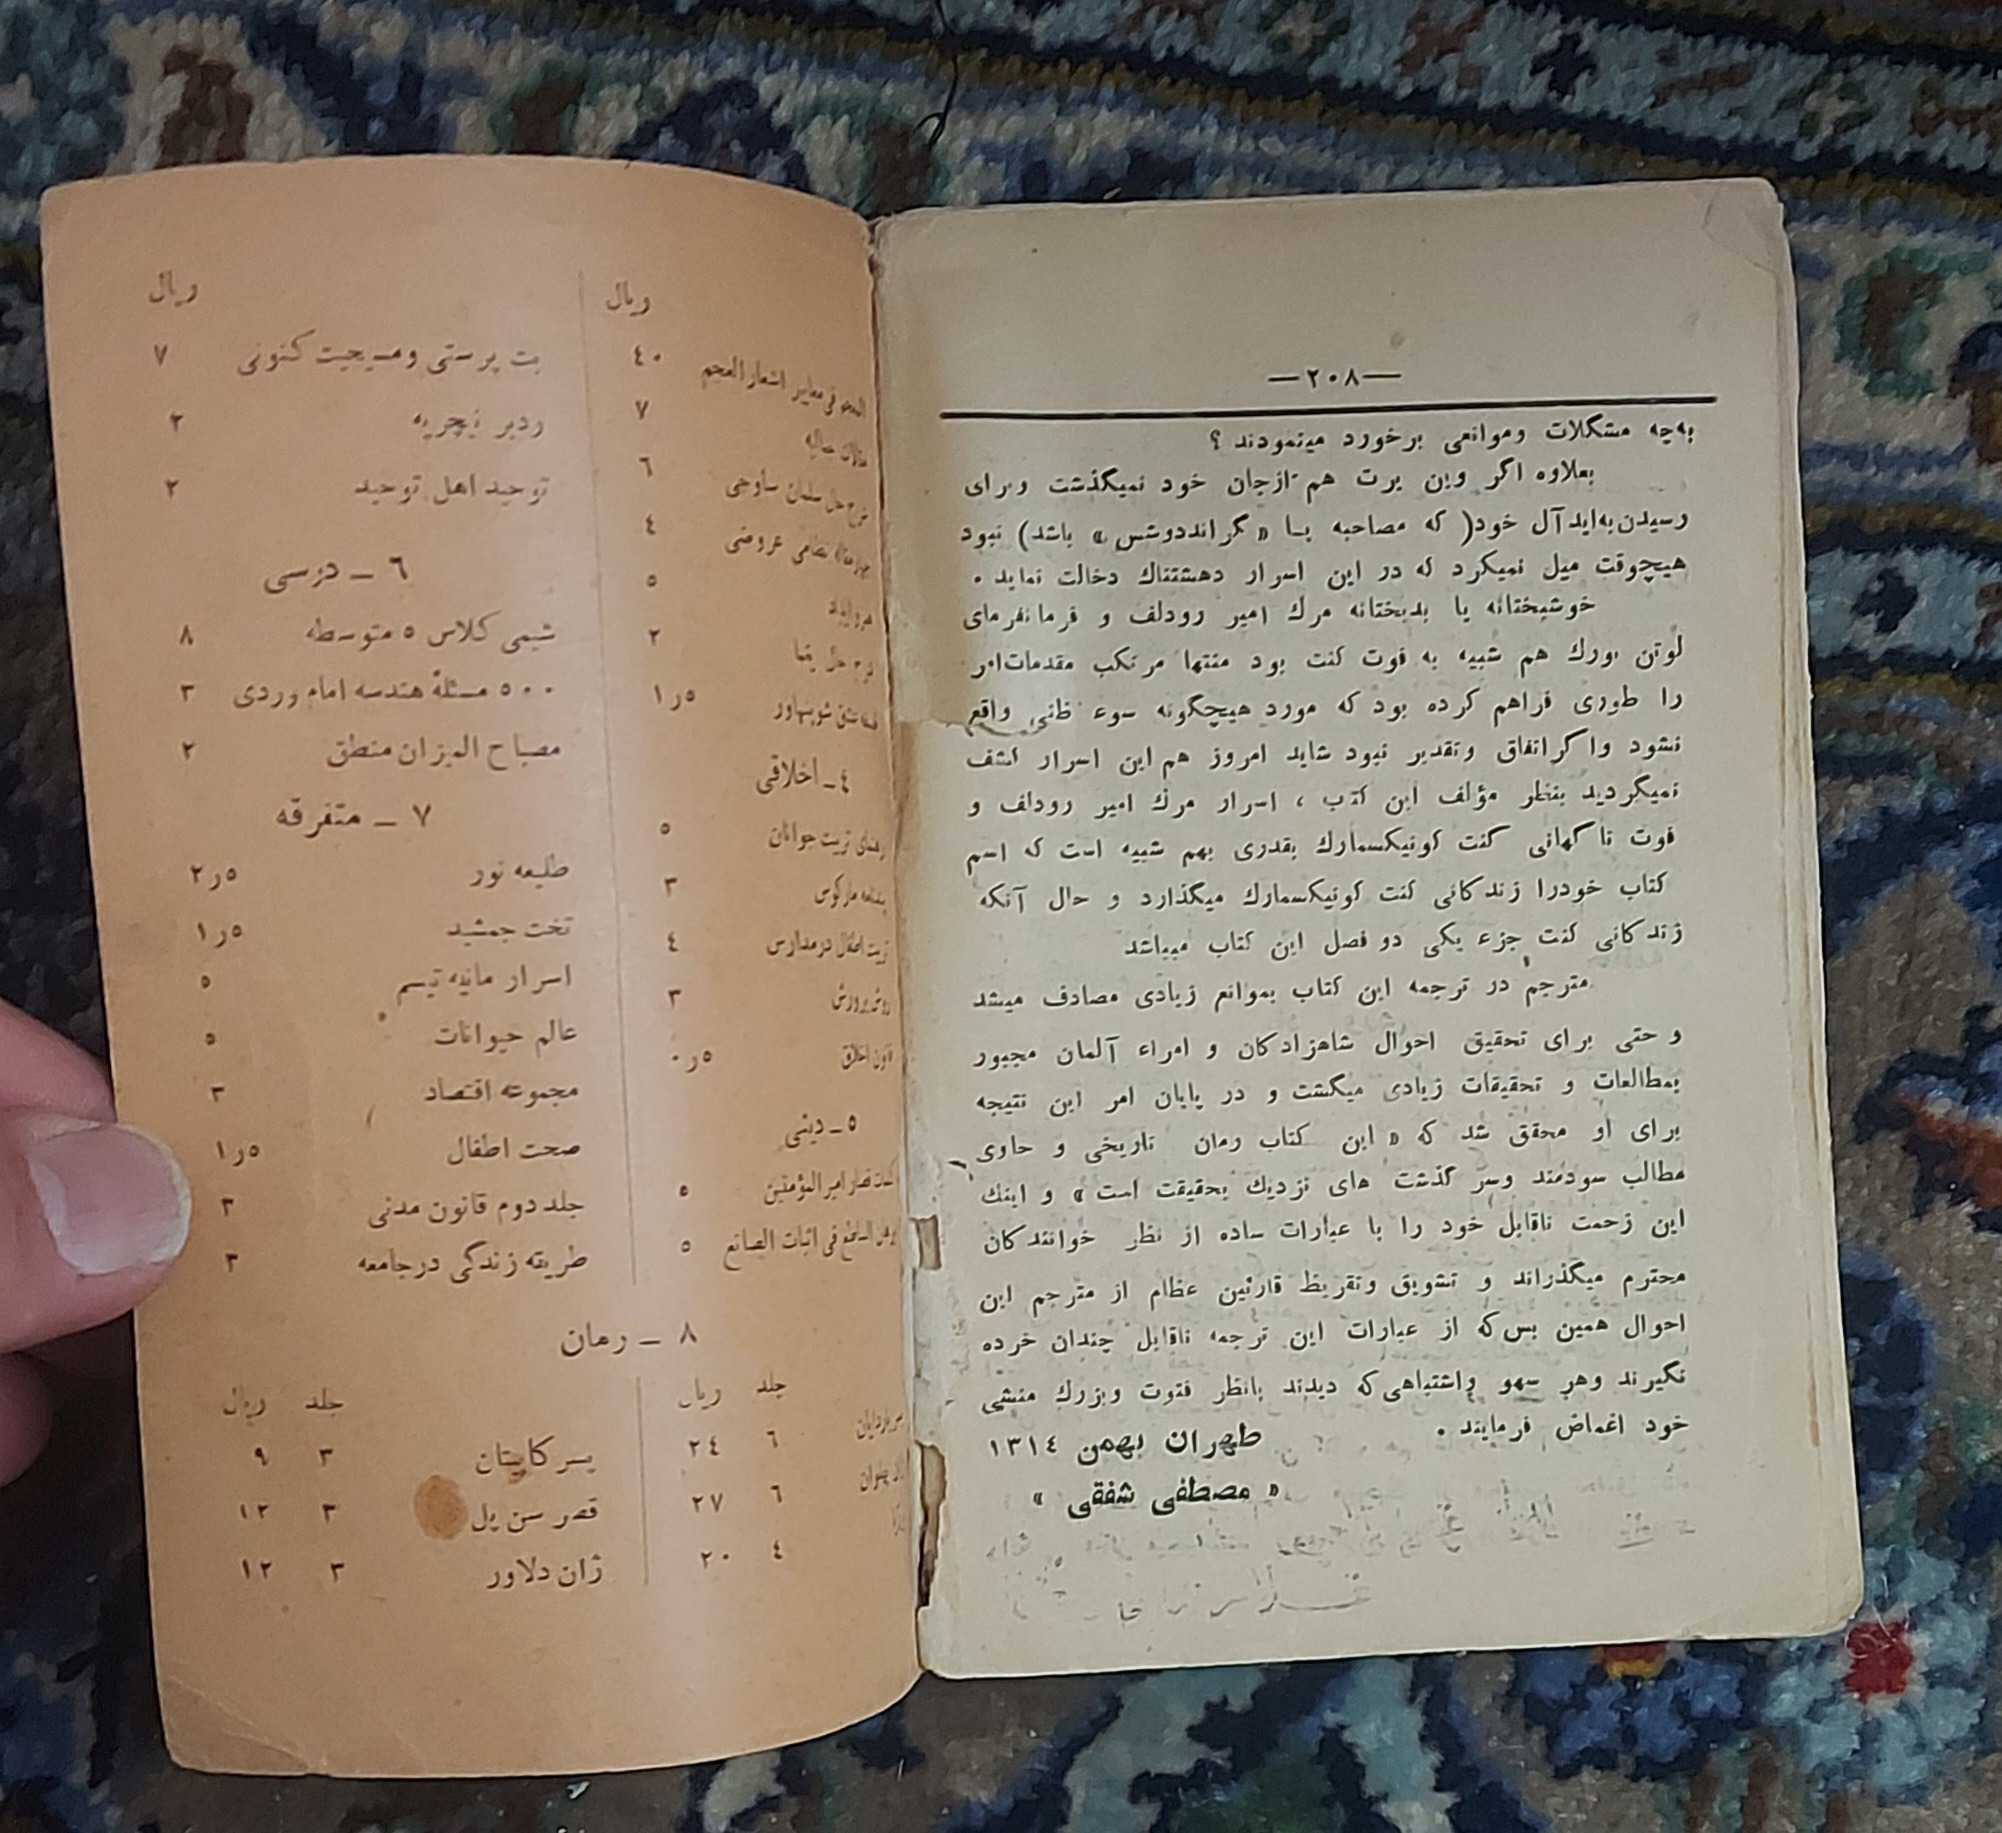 —۲۰۸—
به‌چه مشکلات وموانعی برخورد مینمودند ؟
بعلاوه اگر وین یرت هم ازجان خود نمیگذشت وبرای
رسیدن‌به‌ایدآل خود( که مصاحبه بــا « گرانددوشس » باشد) نبود
هیچوقت میل نمیکرد که در این اسرار دهشتناك دخالت نماید .
خوشبختانه یا بدبختانه مرك امیر رودلف و فرمانفرمای
لوتن بورك هم شبیه به فوت کنت بود منتها مرتکب مقدمات‌امر
را طوری فراهم کرده بود که مورد هیچگونه سوء ظنی واقع
نشود واگراتفاق وتقدیر نبود شاید امروز هم این اسرار کشف
نمیگردید بنظر مؤلف این کتاب ، اسرار مرك امیر رودلف و
فوت ناگهانی کنت کونیکسمارك بقدری بهم شبیه است که اسم
کتاب خودرا زندکانی کنت کونیکسمارك میگذارد و حال آنکه
زندکانی کنت جزء یکی دو فصل این کتاب میباشد
مترجم در ترجمه این کتاب بموانع زیادی مصادف میشد
و حتی برای تحقیق احوال شاهزادکان و امراء آلمان مجبور
بمطالعات و تحقیقات زیادی میگشت و در پایان امر این نتیجه
برای او محقق شد که « این کتاب رمان تاریخی و حاوی
مطالب سودمند وسر گذشت های نزدیك بحقیقت است » و اینك
این زحمت ناقابل خود را با عبارات ساده از نظر خوانندکان
محترم میگذراند و تشویق وتقریظ قارئین عظام از مترجم این
احوال همین بس‌که از عبارات این ترجمه ناقابل چندان خرده
نگیرند وهر سهو واشتباهی‌که دیدند بانظر فتوت وبزرك منشی
خود اغماض فرمایند .
طهران بهمن ۱۳۱٤
« مصطفی شفقی »
ریال
المعجم فی معاییر اشعار العجم ٤۰
۷
شرح حال سلمان ساوجی ٦
چهارمقاله نظامی عروضی ٤
۵
شرح حال یغما ۲
شوپنهاور ۵ر۱
٤ــ اخلاقی
رهنمای تربیت جوانان ۵
پندنامه مارکوس ۳
تربیت اطفال درمدارس ٤
روش پرورش ۳
قانون اخلاق ۵ر۰
۵ ــ دینی
کلمات قصار امیر المؤمنین ۵
الساطع فی اثبات الصانع ۵
ریال
بت پرستی ومسیحیت کنونی ۷
ردبر نیچریه ۲
توحید اهل توحید ۲
٦ ــ درسی
شیمی کلاس ۵ متوسطه ۸
۵۰۰ مسئلهٔ هندسه امام وردی ۳
مصباح المیزان منطق ۲
۷ ــ متفرقه
طلیعه نور ۵ر۲
تخت جمشید ۵ر۱
اسرار مانیه تیسم ۵
عالم حیوانات ۵
مجموعه اقتصاد ۳
صحت اطفال ۵ر۱
جلد دوم قانون مدنی ۳
طریقه زندگی درجامعه ۳
۸ ــ رمان
جلد ریال
٦ ۲٤
٦ ۲۷
٤ ۲۰
جلد ریال
پسر کاپیتان ۳ ۹
قصر سن پل ۳ ۱۲
ژان دلاور ۳ ۱۲